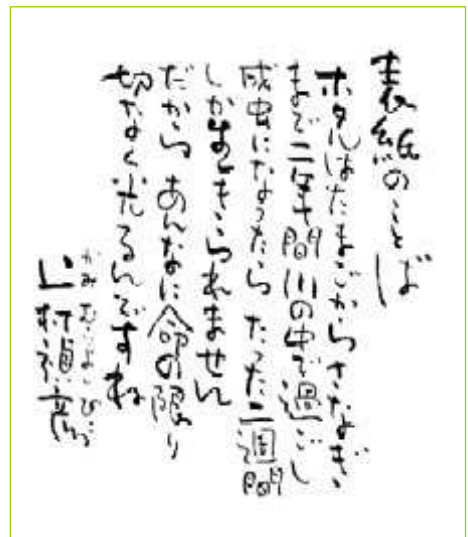 表紙のことば
ホタルはたまごからさなぎ
まで二年間川の中で過ごし
成虫になったら たった二週間
しか生きられません
だから あんなに命の限り
切なく光るんですね
かみ むら
上村